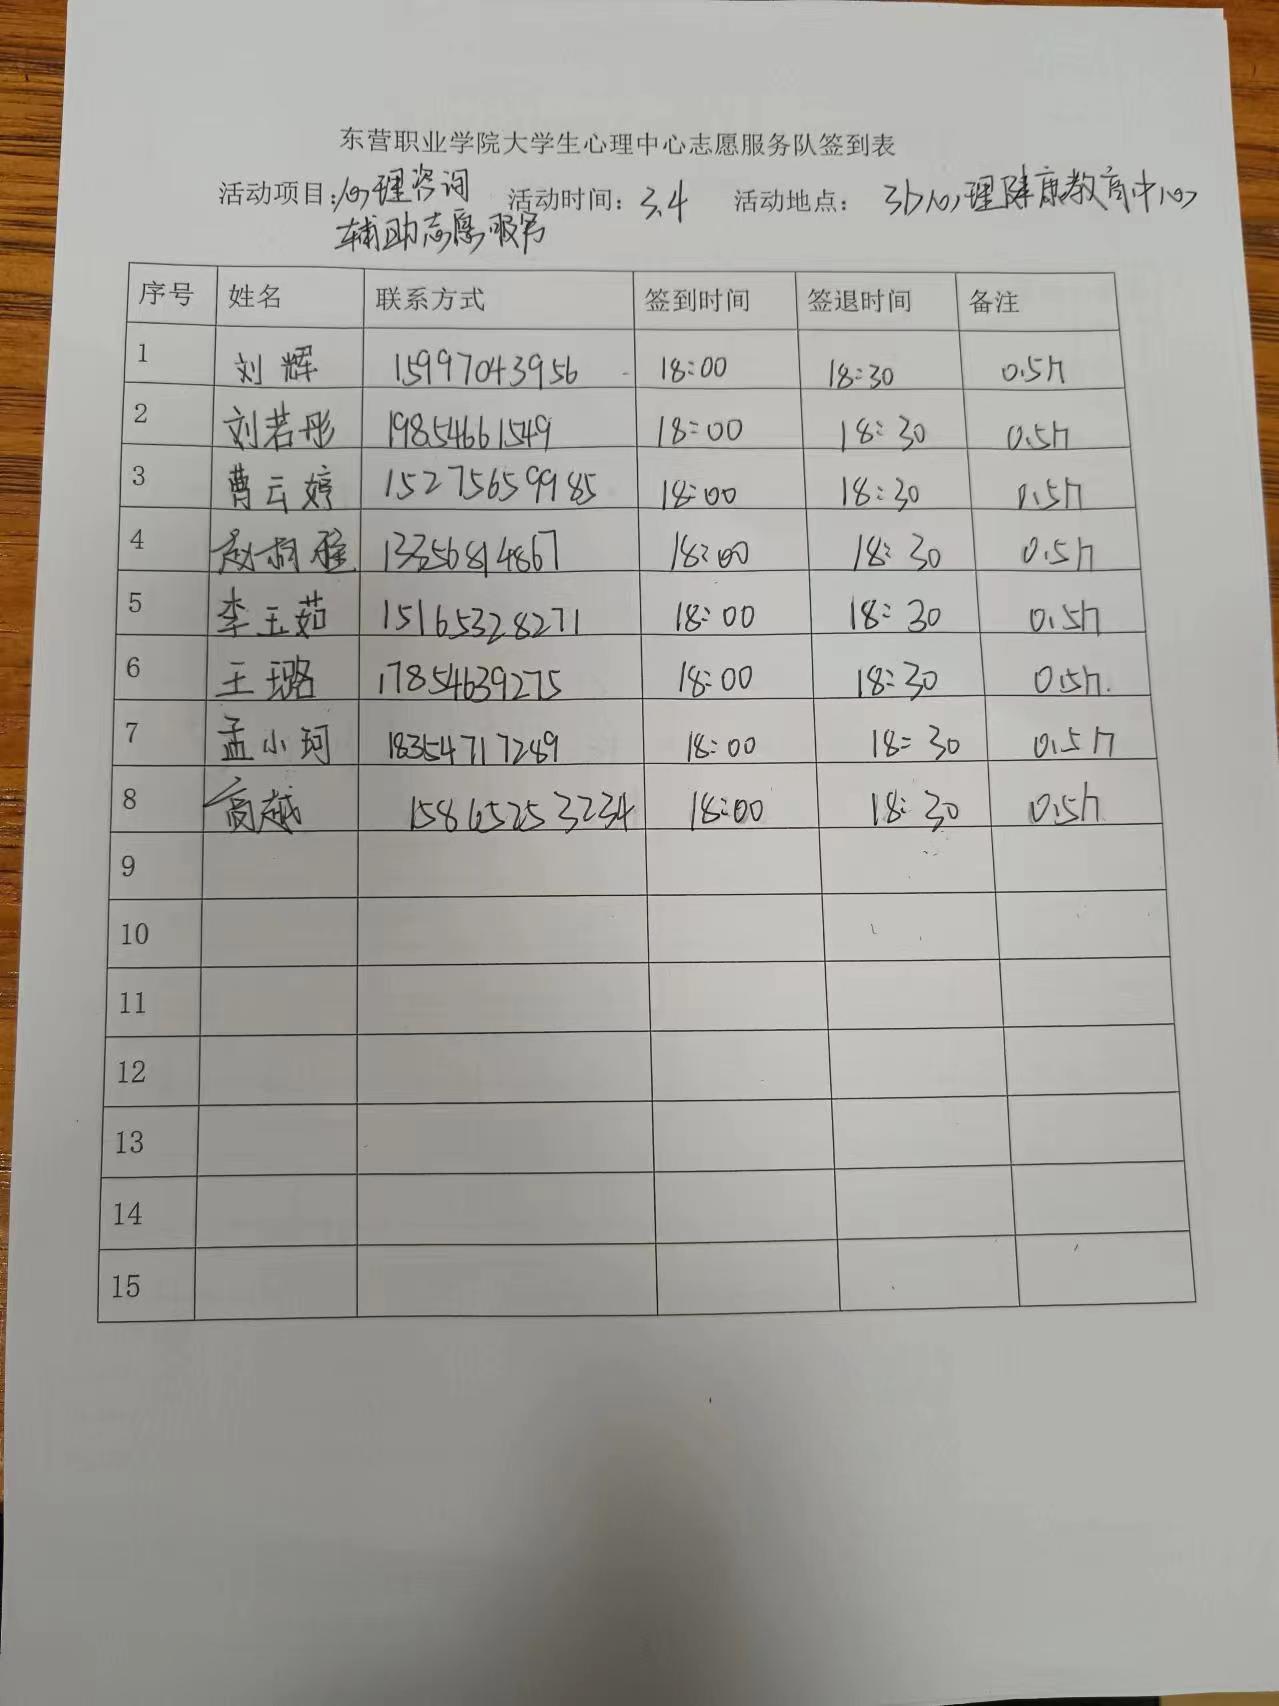 东营职业学院大学生心理中心志愿服务队签到表
活动项目:心理咨询 活动时间: 3.4 活动地点: 3b心理健康教育中心
辅助志愿服务
序号 姓名 联系方式 签到时间 签退时间 备注
1 刘辉 15997043956 18:00 18:30 0.5h
2 刘若彤 19854661549 18:00 18:30 0.5h
3 曹云婷 15275659985 18:00 18:30 0.5h
4 赵 13356814867 18:00 18:30 0.5h
5 李玉茹 15165328271 18:00 18:30 0.5h
6 王璐 17854639275 18:00 18:30 0.5h.
7 孟小珂 18354717289 18:00 18:30 0.5h
8 高越 15865253234 18:00 18:30 0.5h
9
10
11
12
13
14
15